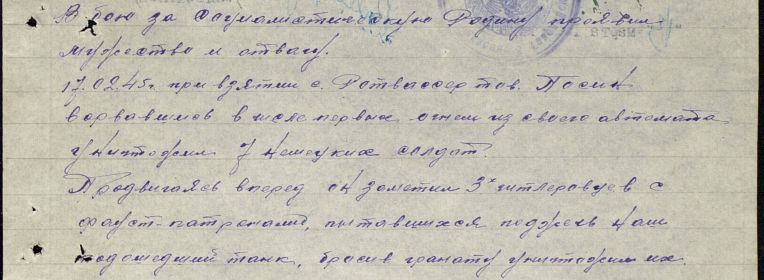 В бою за социалистическую Родину проявил
мужество и отвагу.
17.02.45г. при взятии с. Ротвассер тов. Посин
ворвавшись в числе первых огнем из своего автомата
уничтожил 7 немецких солдат.
Продвигаясь вперед он заметил 3х гитлеровцев с
фауст-патронами, пытавшихся поджечь наш
подошедший танк, бросив гранату уничтожил их.